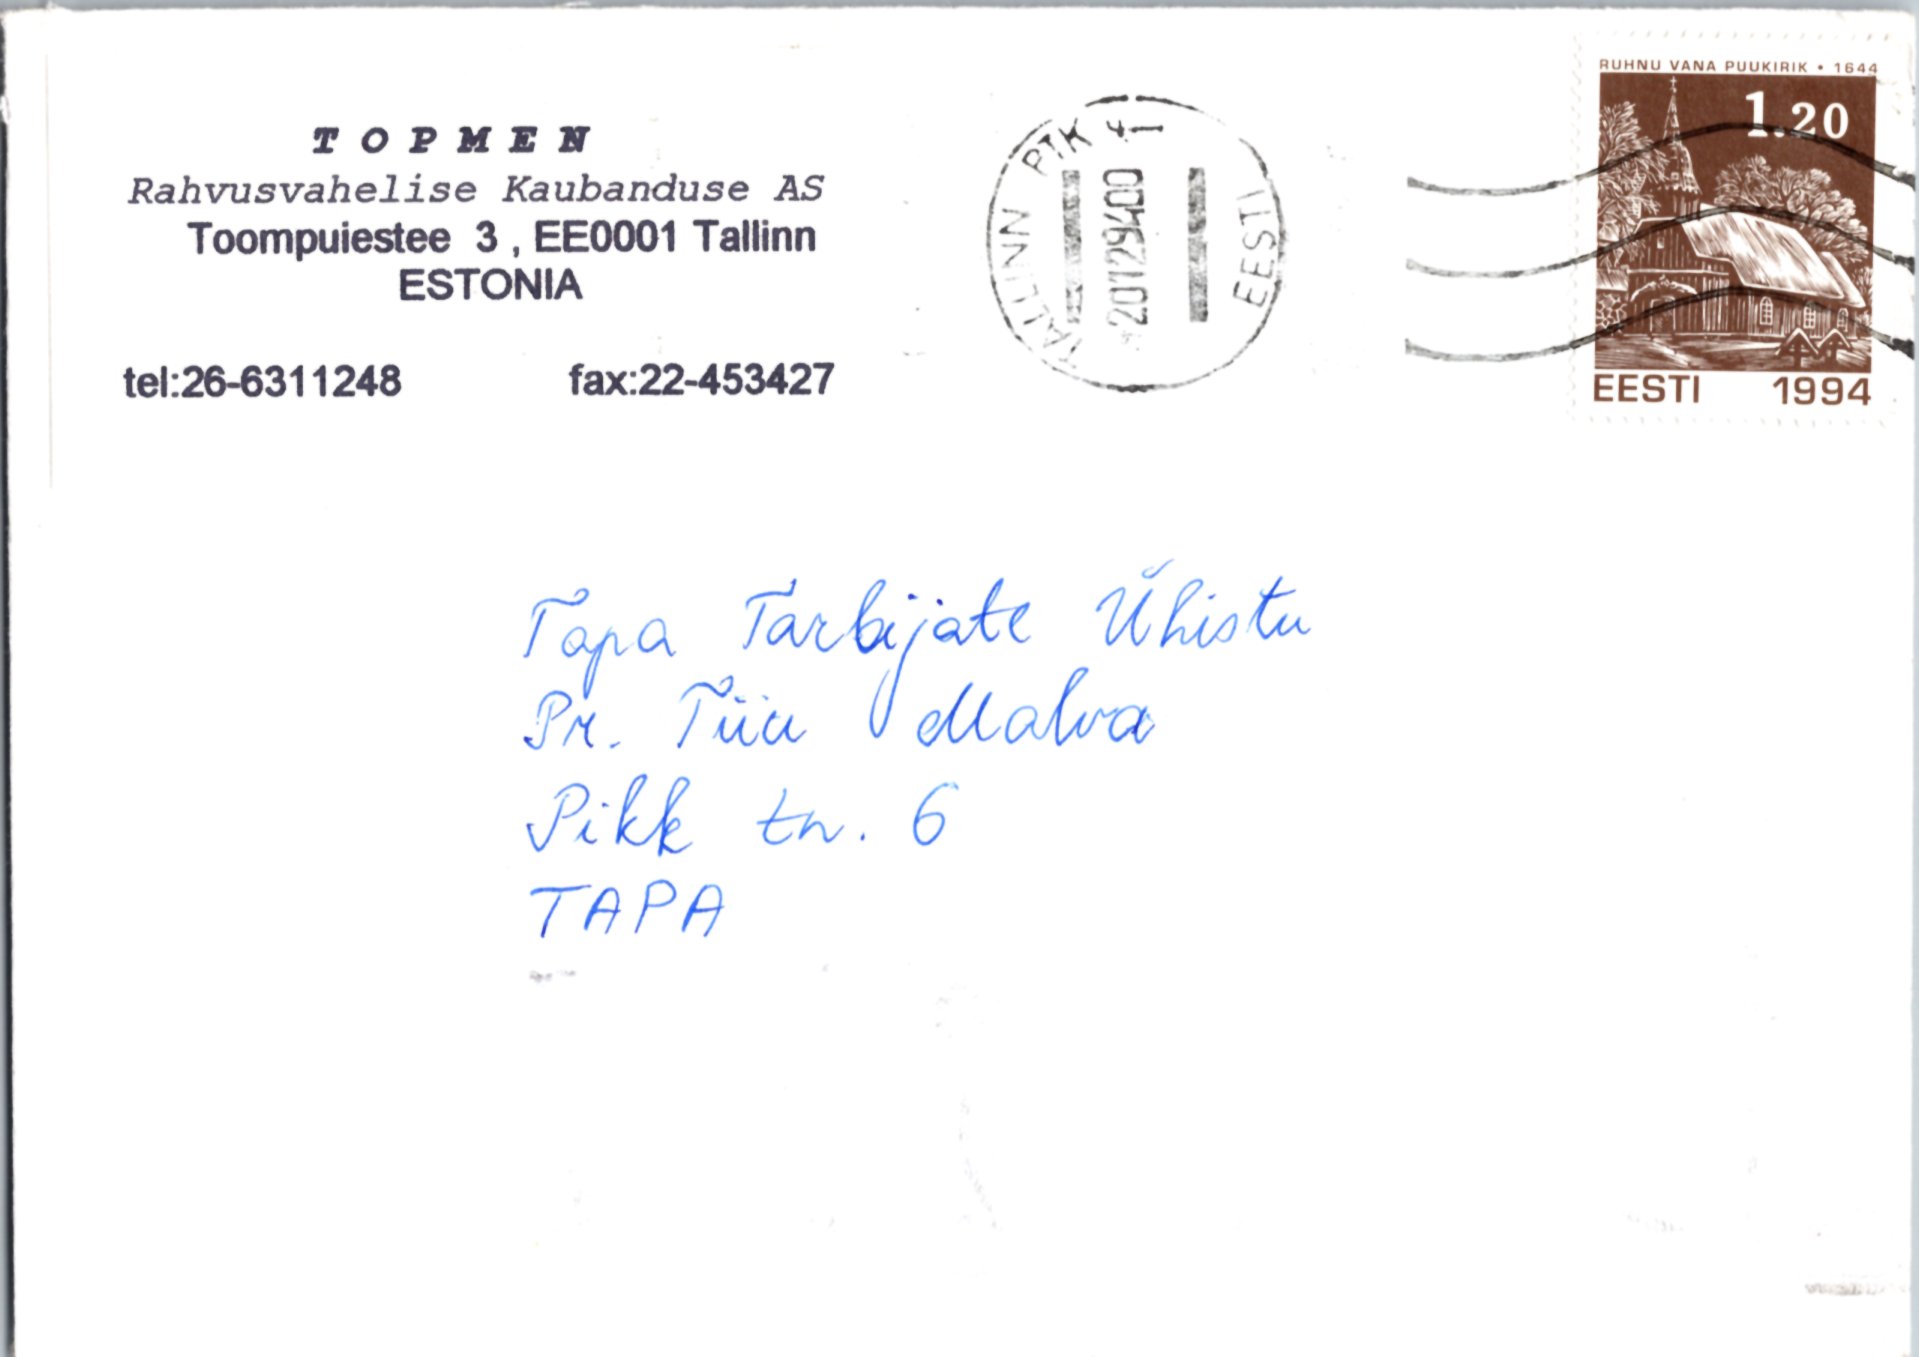 TOPMEN
Rahvusvahelise Kaubanduse AS
Toompuiestee 3 , EE0001 Tallinn
ESTONIA
tel:26-6311248 fax:22-453427
TALLINN PTK 1
EESTI
RUHNU VANA PUUKIRIK • 1644
1.20
EESTI 1994
Tapa Tarbijate Ühistu
Pr. Tiiu Malva
Pikk tn. 6
TAPA